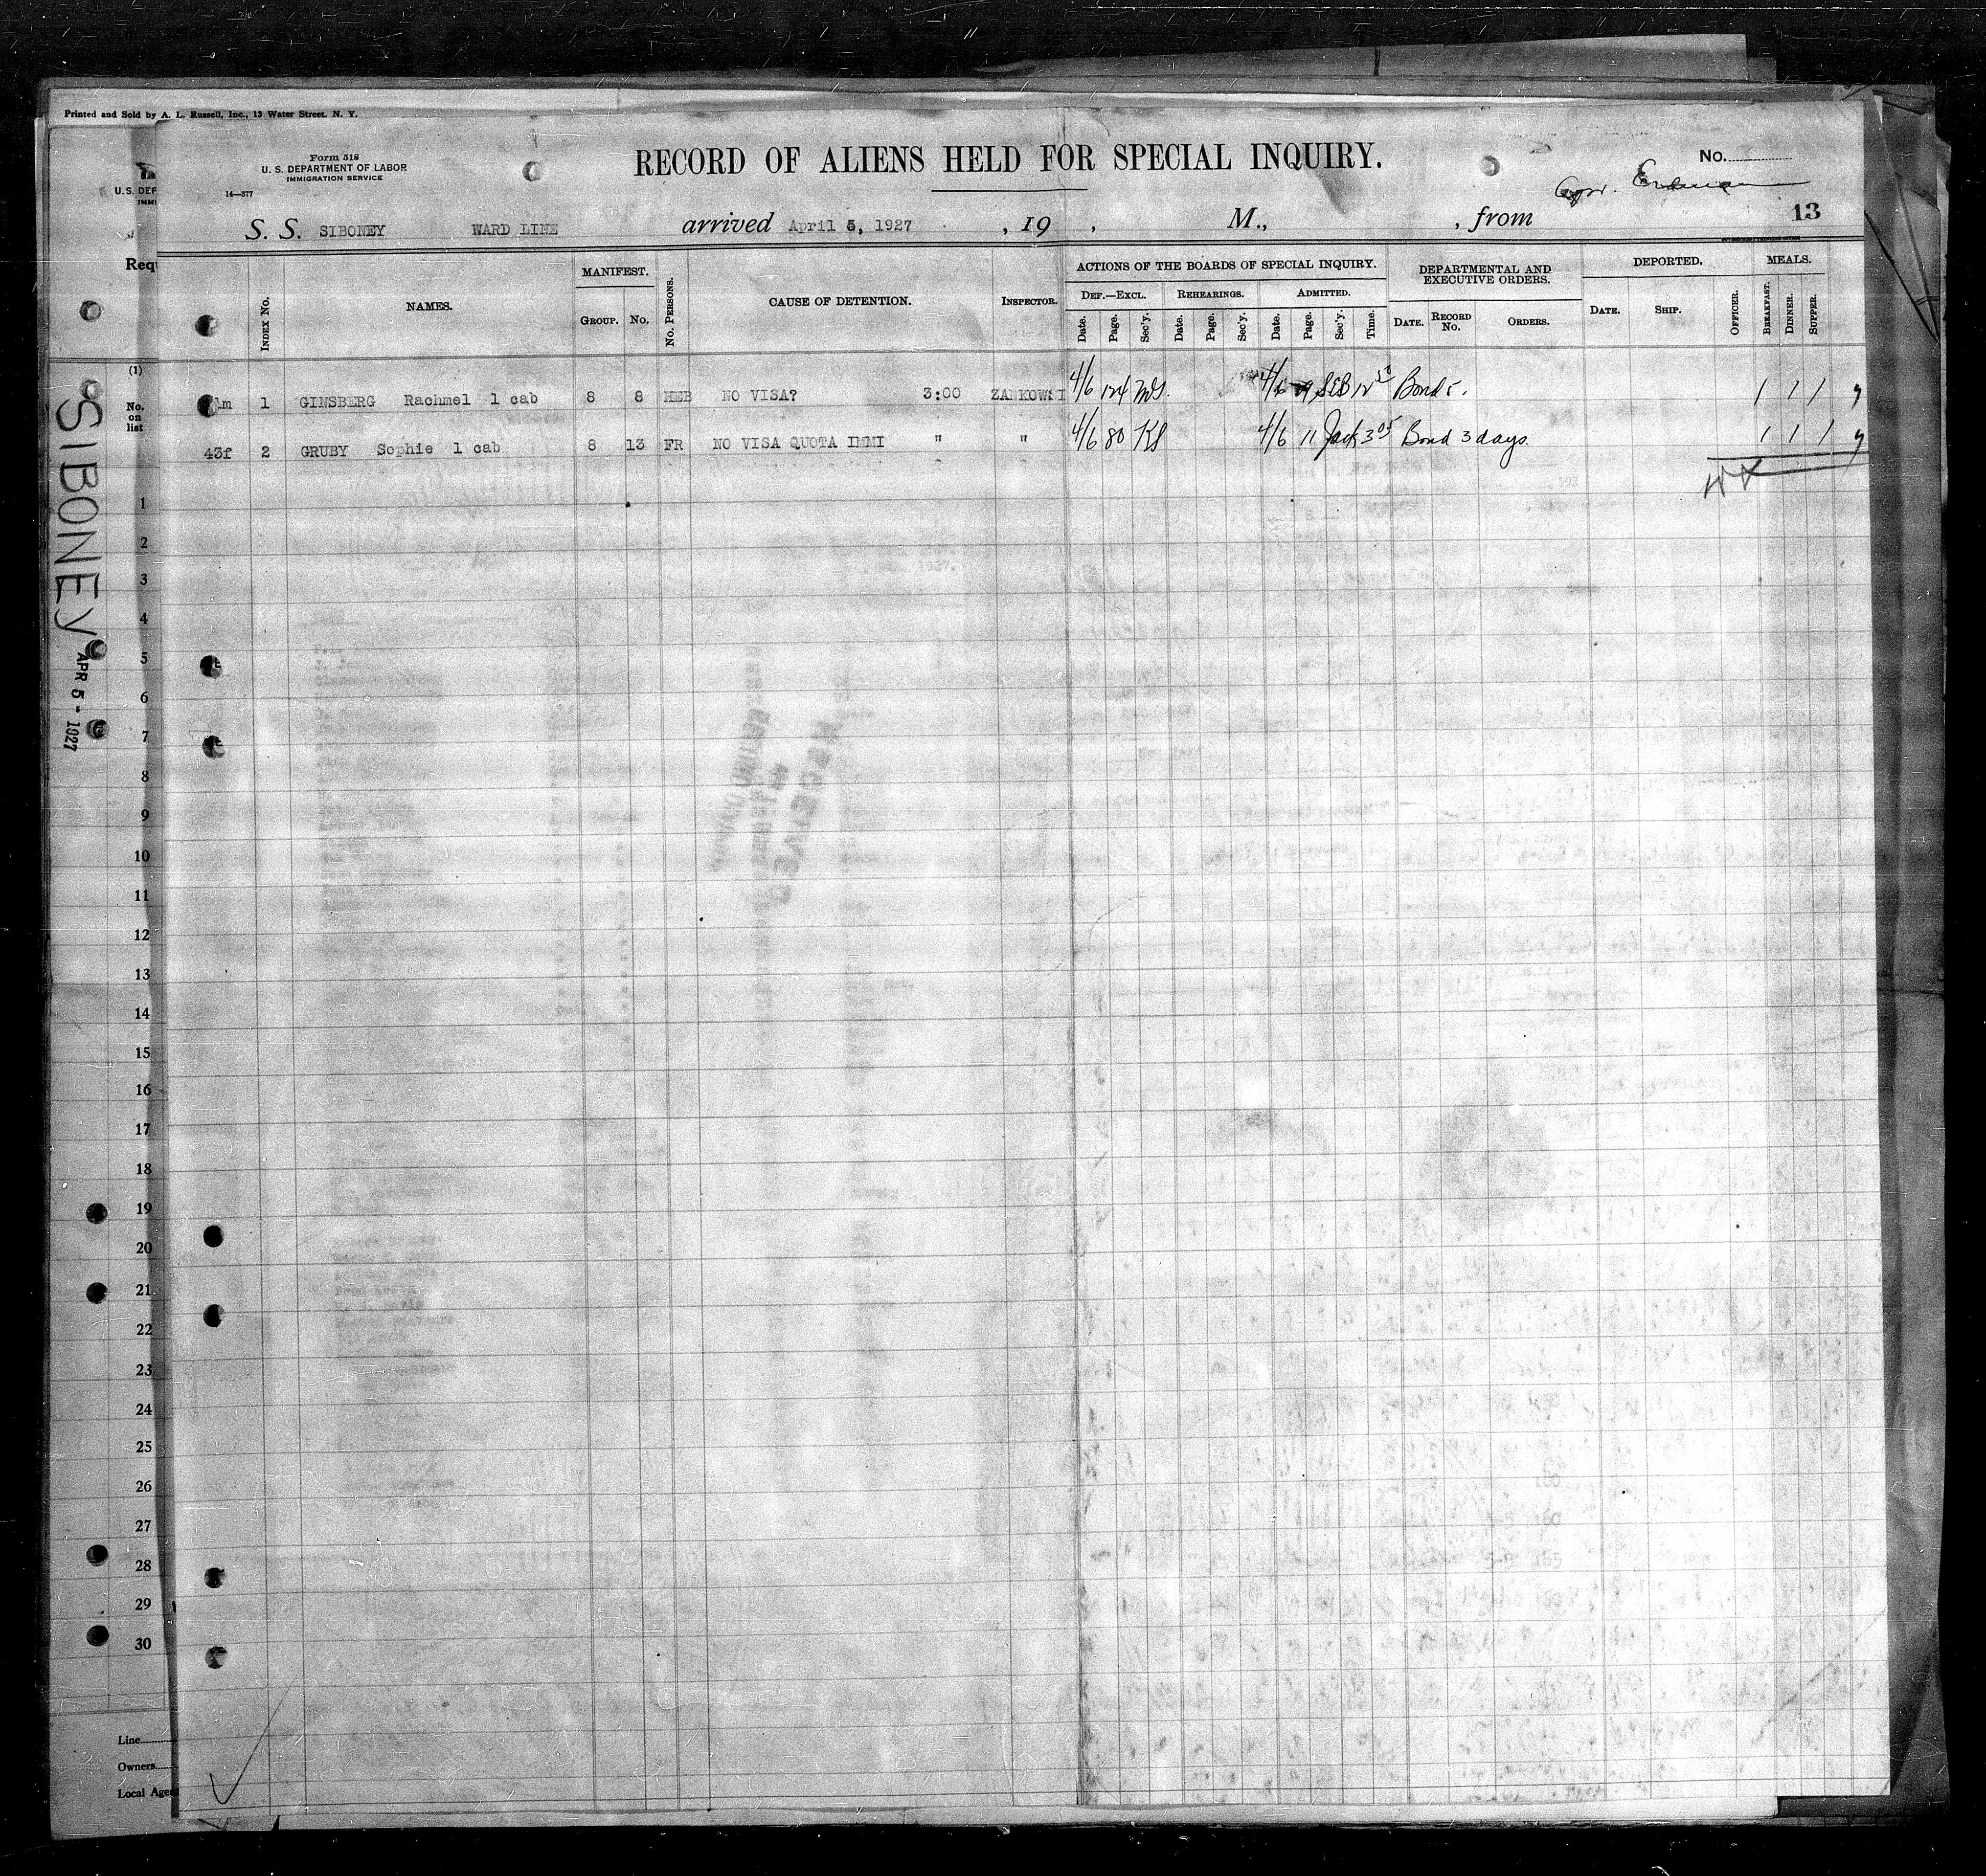 Printed and Sold by A. L. Russell, Inc., 13 Water Street. N. Y.
Form 518
U. S. DEPARTMENT OF LABOR
IMMIGRATION SERVICE
14—377
RECORD OF ALIENS HELD FOR SPECIAL INQUIRY.
No.
13
S. S. SIBONEY WARD LINE arrived April 5, 1927 , 19 , M., , from
U. S. DEP
Req
INDEX No. NAMES. MANIFEST. GROUP. No. No. PERSONS. CAUSE OF DETENTION. INSPECTOR. ACTIONS OF THE BOARDS OF SPECIAL INQUIRY. DEF.—EXCL. Date. Page. Sec'y. REHEARINGS. Date. Page. Sec'y. ADMITTED. Date. Page. Sec'y. Time. DEPARTMENTAL AND EXECUTIVE ORDERS. DATE. RECORD No. ORDERS. DEPORTED. DATE. SHIP. OFFICER. MEALS. BREAKFAST. DINNER. SUPPER.
(1)
No. on list
1 GINSBERG Rachmel 1 cab 8 8 HEB NO VISA? 3:00 ZAMKOWSKI 4/6 124 4/6 9 Bond
43f 2 GRUBY Sophie 1 cab 8 13 FR NO VISA QUOTA IMMI " " 4/6 80 4/6 11 Jack 3 05 Bond 3 days. 1 1 1
SIBONEY
APR 5 - 1927
1
2
3
4
5
6
7
8
9
10
11
12
13
14
15
16
17
18
19
20
21
22
23
24
25
26
27
28
29
30
Line
Owners
Local Age